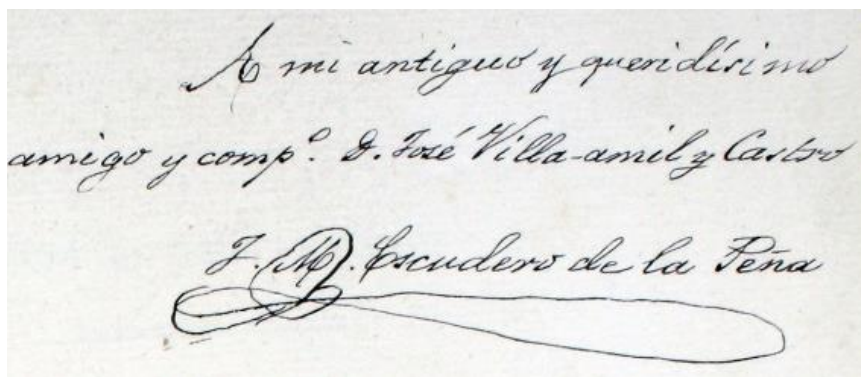 A mi antiguo y queridísimo
amigo y comp.º D. José Villa-amil y Castro
J. M. Escudero de la Peña